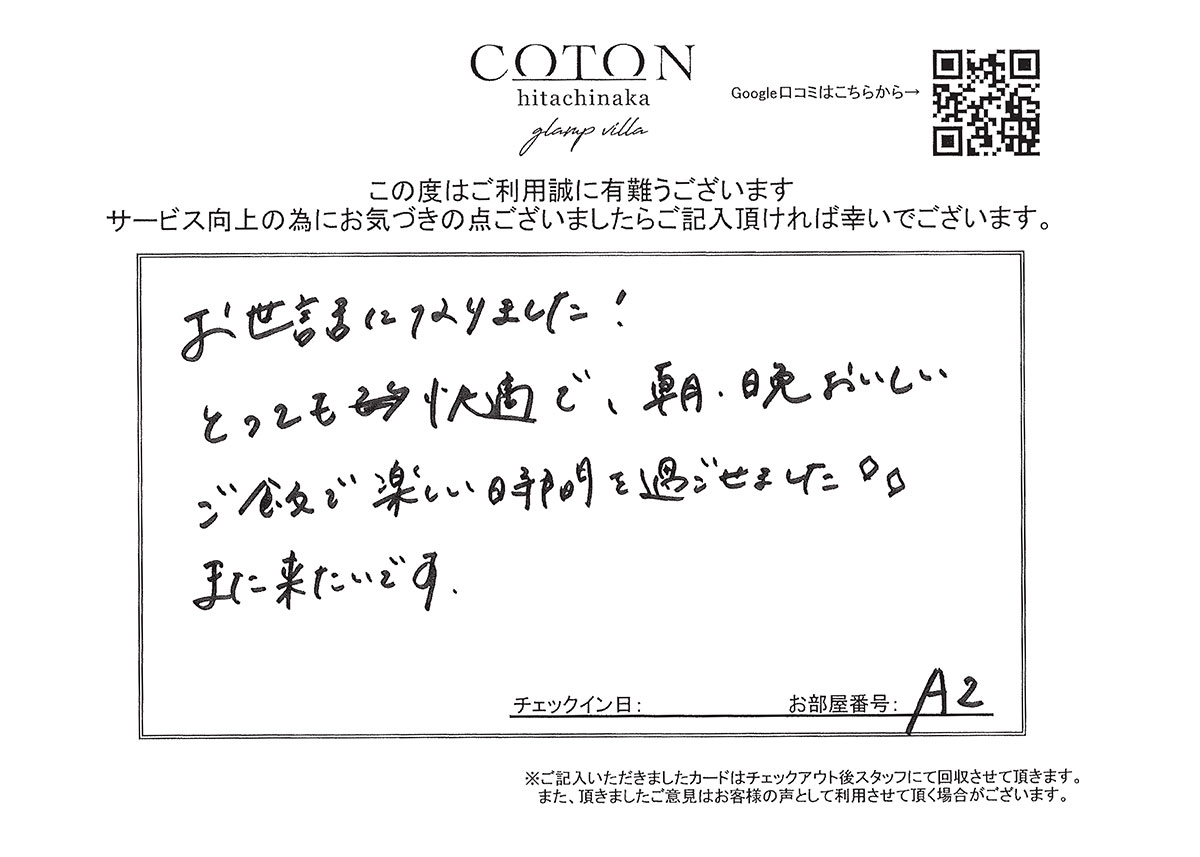 COTON
hitachinaka
glamp villa
Google口コミはこちらから→
この度はご利用誠に有難うございます
サービス向上の為にお気づきの点ございましたらご記入頂ければ幸いでございます。
お世話になりました！
とっても快適で、朝・晩おいしい
ご飯で楽しい時間を過ごせました
また来たいです.
チェックイン日： お部屋番号： A2
※ご記入いただきましたカードはチェックアウト後スタッフにて回収させて頂きます。
また、頂きましたご意見はお客様の声として利用させて頂く場合がございます。